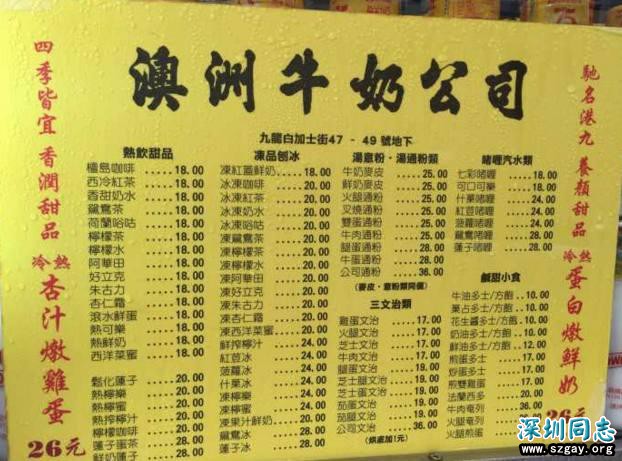 澳洲牛奶公司
九龍白加士街47 - 49 號地下
四季皆宜 香潤甜品
冷熱 杏汁燉雞蛋
26元
熱飲甜品
檀島咖啡 .....18.00
西冷紅茶 .....18.00
香甜奶水 .....18.00
鴛鴦茶 .....18.00
荷蘭哈咕 .....18.00
檸檬茶 .....18.00
檸檬水 .....18.00
阿華田 .....18.00
好立克 .....18.00
朱古力 .....18.00
杏仁霜 .....18.00
滾水鮮蛋 .....18.00
熱可樂 .....18.00
熱鮮奶 .....18.00
西洋菜蜜 .....18.00
鬆化蓮子 .....20.00
熱檸樂 .....20.00
熱檸蜜 .....20.00
熱鮮檸汁 .....20.00
檸檬咖啡 .....20.00
蓮子蛋茶 .....28.00
鮮奶蓮子 .....28.00
凍品刨冰
凍紅蓋鮮奶 .....18.00
冰凍咖啡 .....20.00
冰凍紅茶 .....20.00
冰凍奶水 .....20.00
冰凍哈咕 .....20.00
凍鴛鴦茶 .....20.00
凍檸檬茶 .....20.00
凍檸檬水 .....20.00
凍阿華田 .....20.00
凍好立克 .....20.00
凍朱古力 .....20.00
凍杏仁霜 .....20.00
凍西洋菜蜜 .....20.00
鮮搾檸汁 .....24.00
紅荳冰 .....24.00
菠蘿冰 .....24.00
什果冰 .....24.00
凍檸樂 .....24.00
凍檸蜜 .....24.00
凍果汁鮮奶 .....20.00
鴛鴦冰 .....28.00
蓮子冰 .....28.00
湯意粉・湯通粉類
牛奶麥皮 .....25.00
鮮奶麥皮 .....25.00
火腿通粉 .....25.00
叉燒通粉 .....25.00
雙蛋通粉 .....25.00
牛肉通粉 .....25.00
腿蛋通粉 .....28.00
牛蛋通粉 .....28.00
公司通粉 .....36.00
(麥皮、意粉類同價)
三文治類
雞蛋文治 .....17.00
火腿文治 .....17.00
芝士文治 .....17.00
牛肉文治 .....17.00
腿蛋文治 .....19.00
芝士腿文治 .....19.00
芝士蛋文治 .....19.00
茄蛋文治 .....19.00
茄腿文治 .....19.00
公司文治 .....36.00
(烘底加1元)
啫喱汽水類
七彩啫喱 .....18.00
可口可樂 .....18.00
什菓啫喱 .....24.00
紅荳啫喱 .....24.00
菠蘿啫喱 .....24.00
鴛鴦啫喱 .....28.00
蓮子啫喱 .....28.00
鹹甜小食
牛油多士/方飽 ..10.00
菓占多士/方飽 ..10.00
花生醬多士/方飽 ..10.00
奶油多士/方飽 ..10.00
鮮油多士/方飽 ..10.00
煎蛋多士
炒蛋多士
煎雙雞蛋
法蘭西多
牛肉奄列
火腿奄列
火腿煎蛋
馳名港九 養顏甜品
冷熱 蛋白燉鮮奶
26元
深圳同志
www.szgay.org